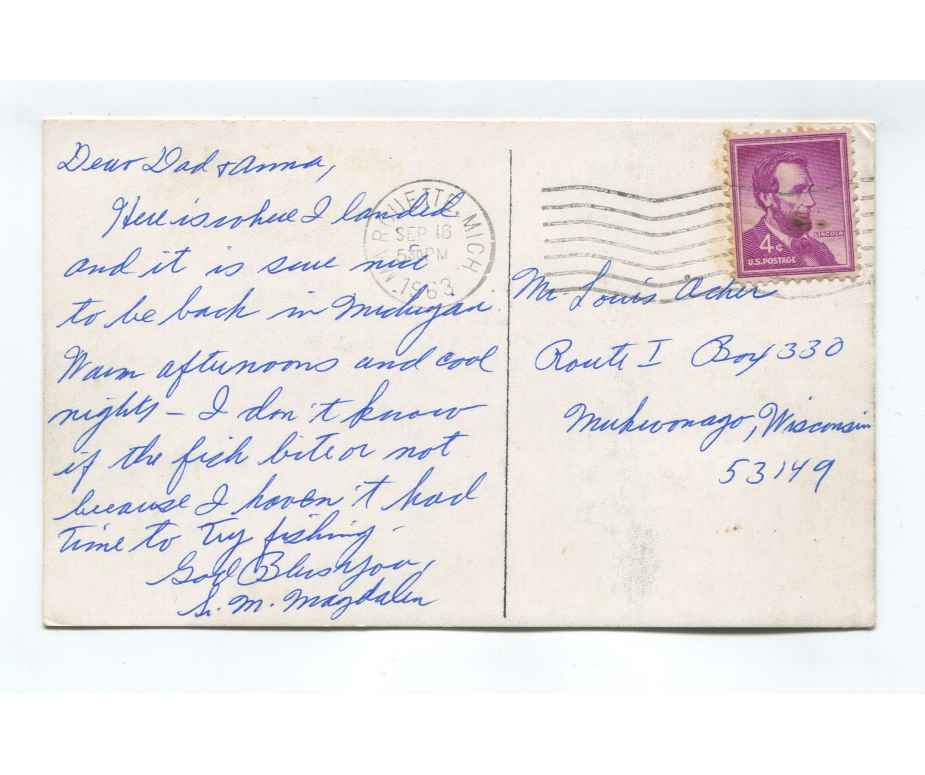 Dear Dad & Anna,
Here is where I landed
and it is sure nice
to be back in Michigan.
Warm afternoons and cool
nights – I don't know
if the fish bite or not
because I haven't had
time to try fishing.
God Bless You,
Sr. M. Magdalen
MARQUETTE, MICH.
SEP 16
5 30 PM
1963
4¢
LINCOLN
U.S. POSTAGE
Mr. Louis Acher
Route I Box 330
Mukwonago, Wisconsin
53149